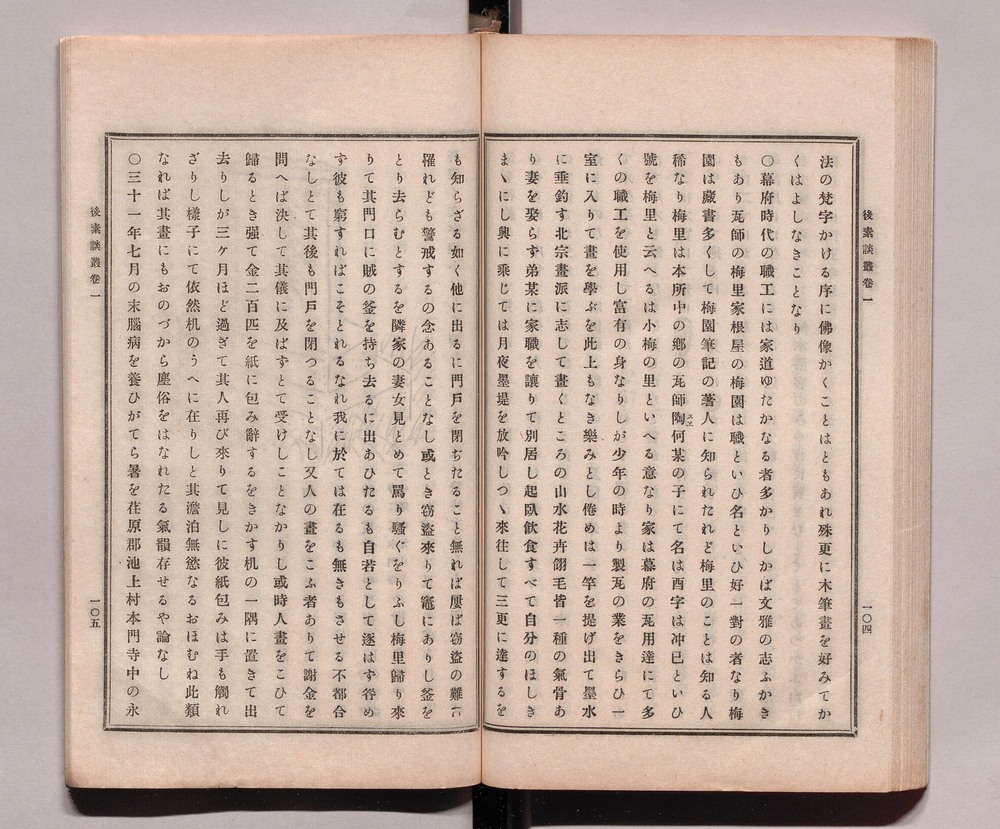 後素談叢卷一
一〇四
法の梵字かける序に佛像かくことはともあれ殊更に木筆畫を好みてか
くはよしなきことなり
〇幕府時代の職工には家道ゆたかなる者多かりしかば文雅の志ふかき
もあり瓦師の梅里家根屋の梅園は職といひ名といひ好一對の者なり梅
園は藏書多くして梅園筆記の著人に知られたれど梅里のことは知る人
稀なり梅里は本所中の鄕の瓦師陶何某の子にて名は酉字は冲巳といひ
スヱ
號を梅里と云へるは小梅の里といへる意なり家は幕府の瓦用達にて多
くの職工を使用し富有の身なりしが少年の時より製瓦の業をきらひ一
室に入りて畫を學ぶを此上もなき樂みとし倦めは一竿を提げ出て墨水
に垂釣す北宗畫派に志して畫くところの山水花卉翎毛皆一種の氣骨あ
り妻を娶らず弟某に家職を讓りて別居し起臥飮食すべて自分のほしき
まヽにし興に乘じては月夜墨堤を放吟しつヽ來往して三更に達するを
も知らざる如く他に出るに門戶を閉ぢたること無れば屢ば窃盜の難に
罹れども警戒するの念あることなし或とき窃盜來りて竈にありし釜を
とり去らむとするを隣家の妻女見とめて罵り騷ぐをりふし梅里歸り來
りて其門口に賊の釜を持ち去るに出あひたるも自若として逐はず咎め
ず彼も窮すればこそとれるなれ我に於ては在るも無きもさせる不都合
なしとて其後も門戶を閉つることなし又人の畫をこふ者ありて謝金を
問へば決して其儀に及ばずとて受けしことなかりし或時人畫をこひて
歸るとき强て金二百匹を紙に包み辭するをきかす机の一隅に置きて出
去りしが三ヶ月ほど過ぎて其人再び來りて見しに彼紙包みは手も觸れ
ざりし樣子にて依然机のうへに在りしと其澹泊無慾なるおほむね此類
なれば其畫にもおのづから塵俗をはなれたる氣韻存せるや論なし
〇三十一年七月の末腦病を養ひがてら暑を荏原郡池上村本門寺中の永
後素談叢卷一
一〇五